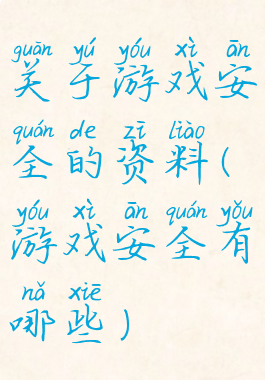 guān yú yóu xì ān
关于游戏安
quán de zī liào
全的资料(
yóu xì ān quán yǒu
游戏安全有
nǎ xiē
哪些)